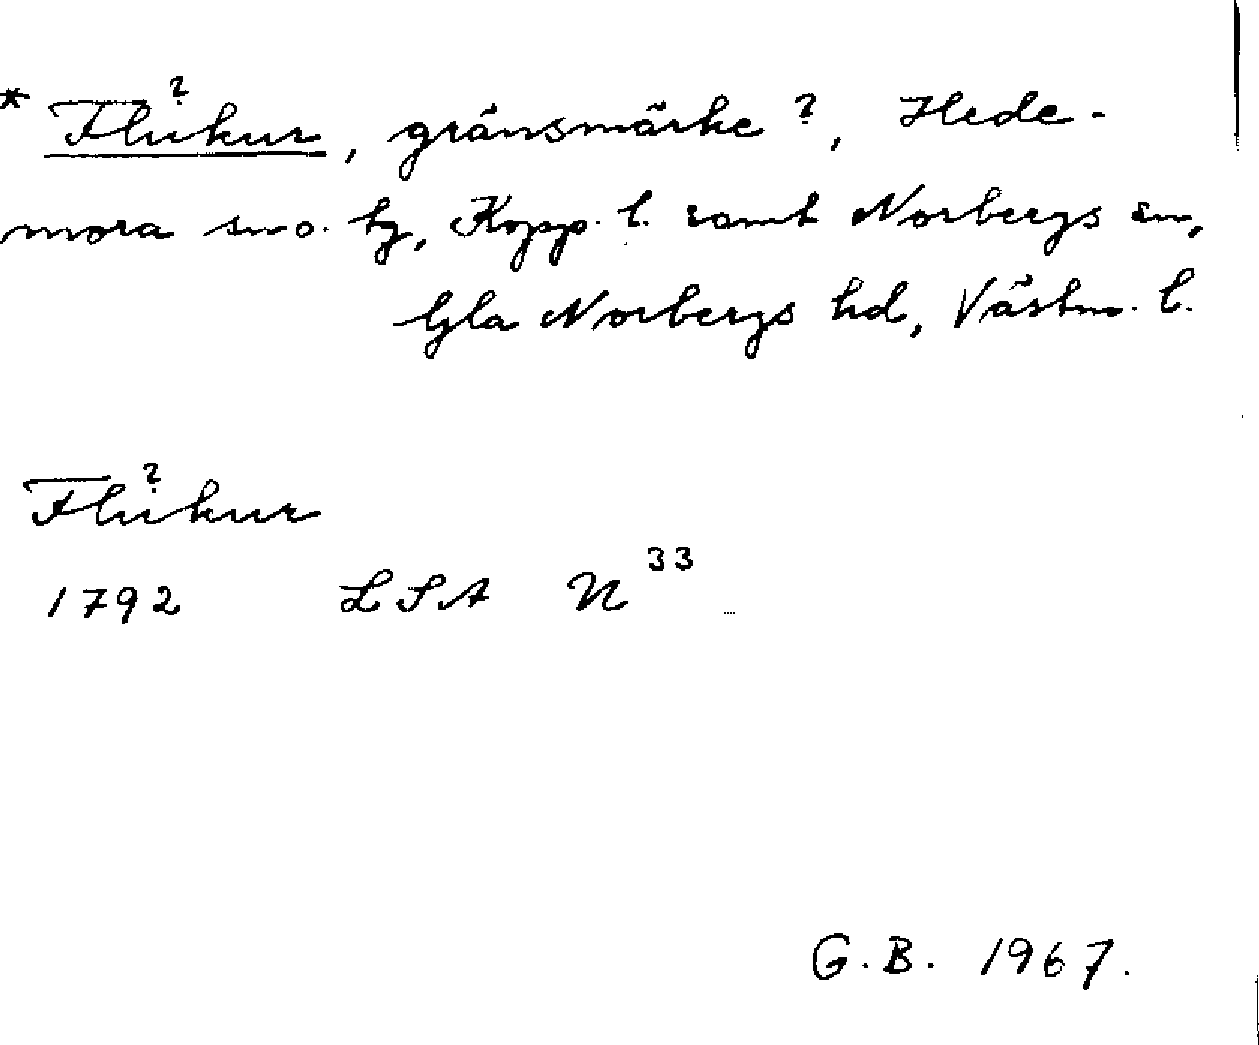 * Flukur?, gränsmärke?, Hede-
mora sn o. tg, Kopp. l. samt Norbergs sn,
Gla Norbergs hd, Västm. l.
Flukur?
1792 LSA N 33
G.B. 1967.